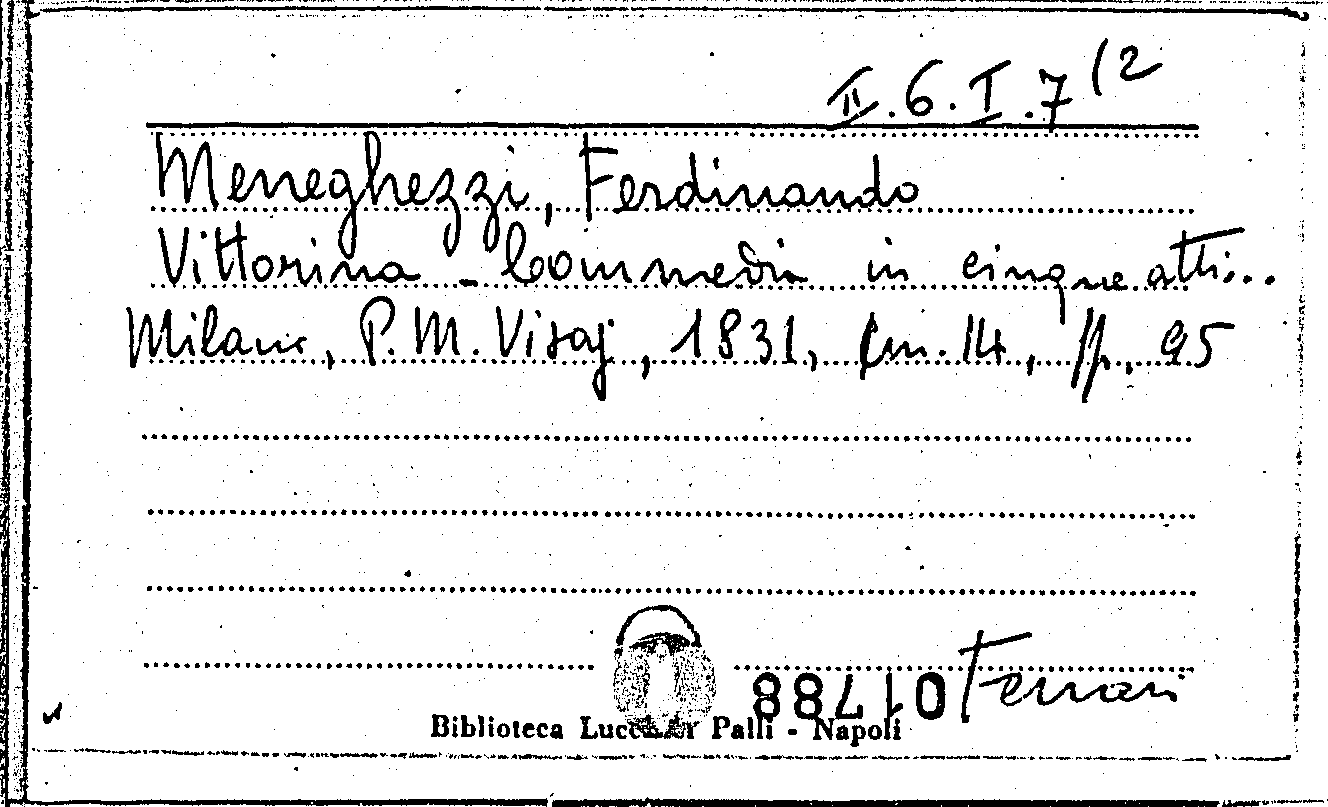 II.6.I.7(2
Meneghezzi, Ferdinando
Vittorina - Commedia in cinque atti...
Milano, P.M. Visaj, 1831, cm. 14, pp. 95
01788 Ferrari
Biblioteca Lucchesi Palli - Napoli